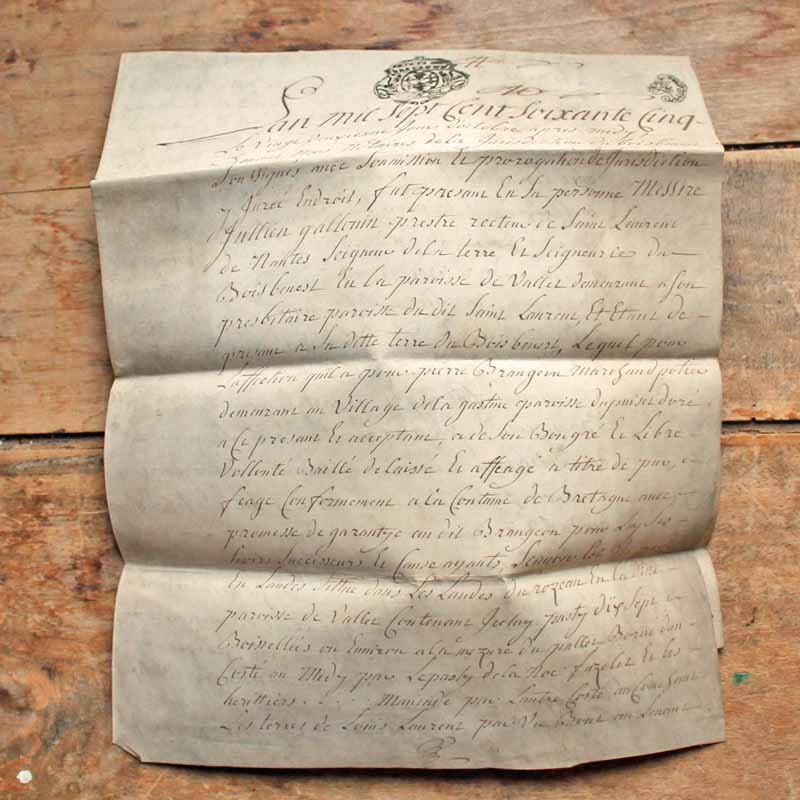 Lan mil Sept Cent Soixante Cinq
Le jour d'octobre apres midy
notaires de la Jurisdiction
Soussignés avec Soumission Et prorogation de Jurisdiction
y Jurée Endroit, fut presant En Sa personne Messire
Jullien gallouin prestre recteur de Saint Laurent
de Nantes Seigneur de la terre Et Seigneurie du
Boisbenest En la paroisse de Vallet demeurant a Son
presbitaire paroisse du dit Saint Laurent, Et Etant de
presant a Sa ditte terre du Boisbenest, Lequel pour
Laffection quil a pour pierre Brangeon marchand potier
demeurant au Village de la gastine paroisse du
a Ce presant Et acceptant, a de Son Bongré Et Libre
Vollonté Baillé delaissé Et affeagé a titre de pur
feage Conformement a la Coutume de Bretagne avec
promesse de garantye au dit Brangeon pour Luy Ses
hoirs Successeurs Et Cause ayants,
En Landes Sittué dans Les Landes du rozeau En la ditte
paroisse de Vallet Contenant Iceluy pasty dix Sept
Boissellés ou Environ a la mezure du pallet Borné dun
Costé au Midy par Le pasty de la Noe Et les
herittiers par Lautre Costé au Couchant
Les terres de Louis Laurent par Un Bout au Levant